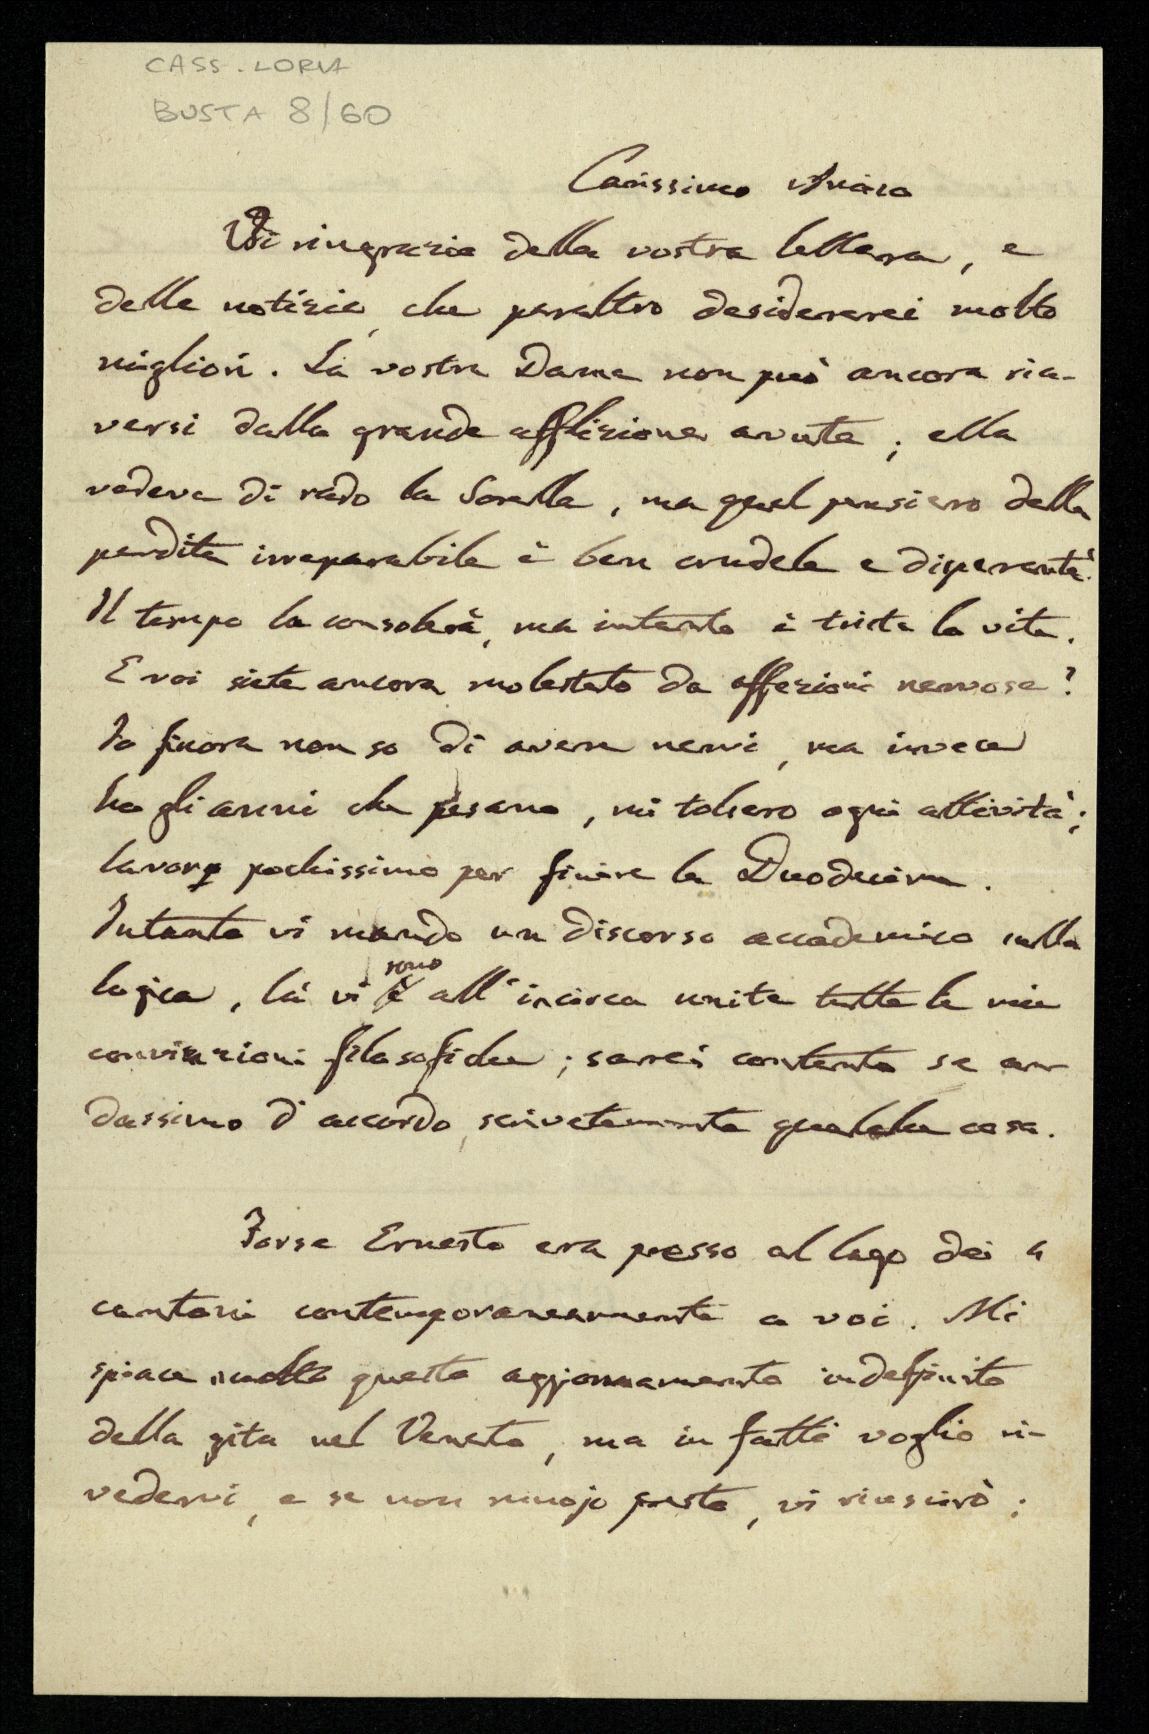 CASS. LORIA
BUSTA 8/60
Carissimo Amico
Vi ringrazio della vostra lettera, e
delle notizie, che peraltro desidererei molto
migliori. La vostra Dama non può ancora ria-
versi dalla grande afflizione avuta; ella
vedeva di rado la Sorella, ma quel pensiero della
perdita irreparabile è ben crudele e
Il tempo la consolerà, ma intanto è trista la vita.
E voi siete ancora molestato da affezioni nervose?
Io finora non so di avere nervi, ma invece
ho gli anni che pesano, mi tolsero ogni attività;
lavoro pochissimo per finire la Duodecima.
Intanto vi mando un discorso accademico sulla
logica, là vi sono all'incirca unite tutte le mie
convinzioni filosofiche; sarei contento se an-
dassimo d'accordo, scrivetemente qualche cosa.
Forse Ernesto era presso al lago dei 4
cantoni contemporaneamente a voi. Mi
spiace molto questo aggiornamento indefinito
della gita nel Veneto, ma in fatti voglio ri-
vedervi, e se non muojo presto, vi riuscirò;